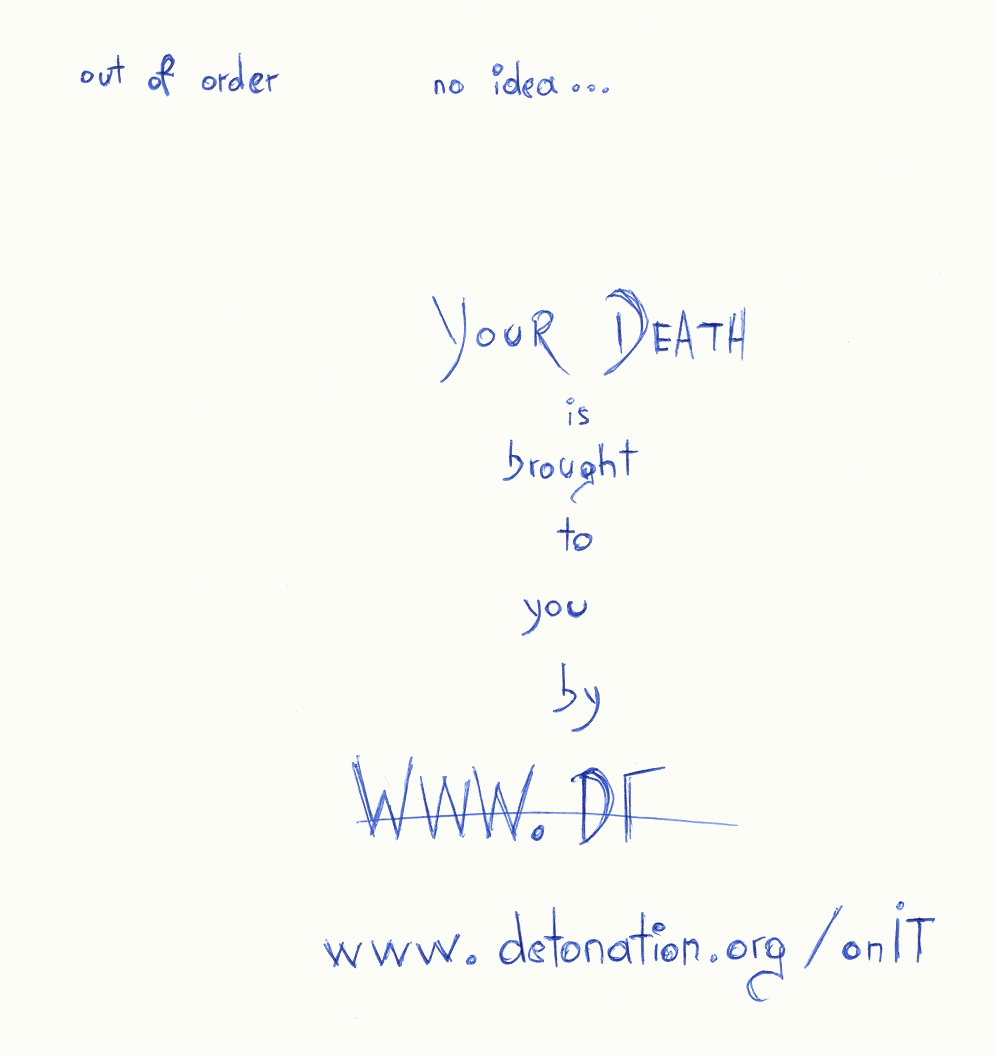 out of order no idea...
YouR DEATH
is
brought
to
you
by
WWW. DT
www.detonation.org/onIT